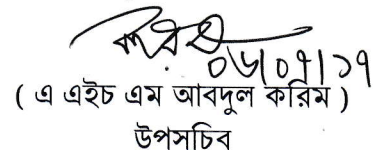 ০৬|০৭|১৭
( এ এইচ এম আবদুল করিম )
উপসচিব